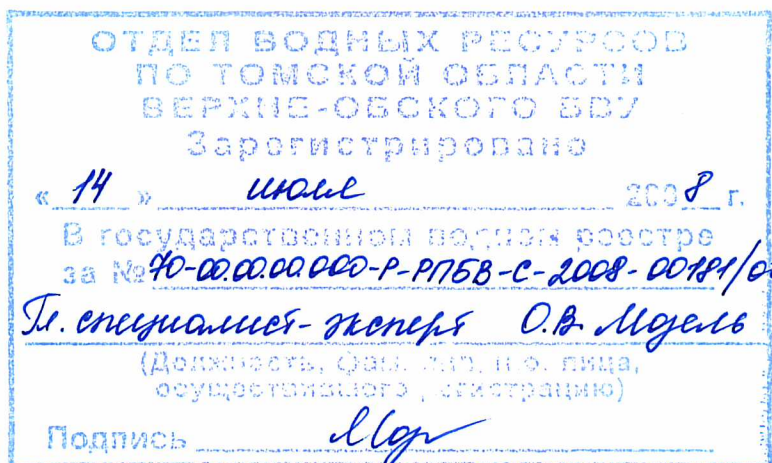 ОТДЕЛ ВОДНЫХ РЕСУРСОВ
ПО ТОМСКОЙ ОБЛАСТИ
ВЕРХНЕ-ОБСКОГО БВУ
Зарегистрировано
« 14 » июля 2008 г.
В государственном водном реестре
за № 70-00.00.00.000-Р-РПБВ-С-2008-00181/0
Гл. специалист-эксперт О.В.
(Должность, фам. и.о. лица,
осуществившего регистрацию)
Подпись